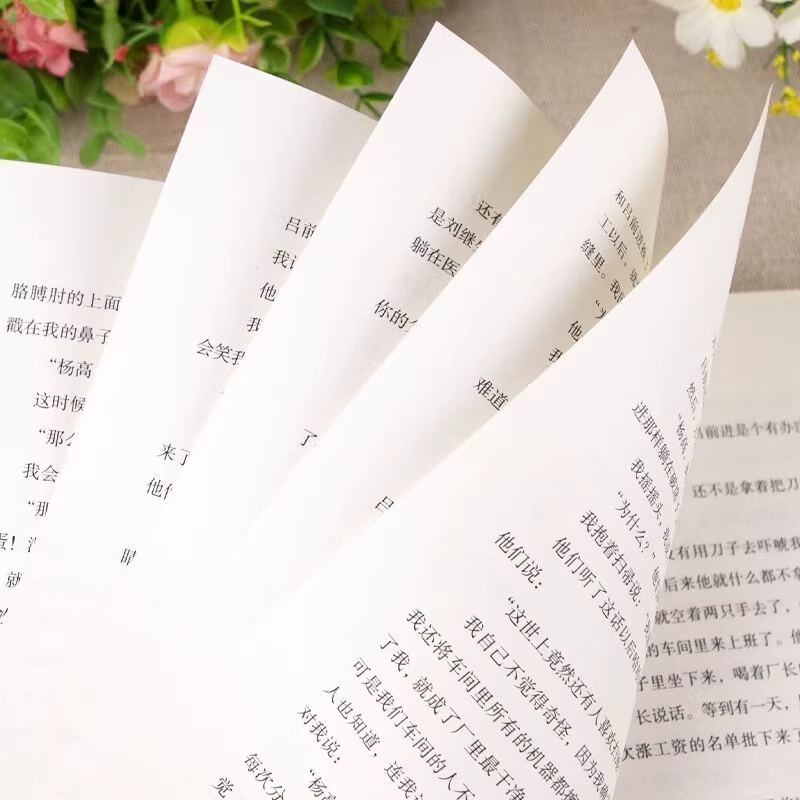 胳膊肘的上面
戳在我的鼻子
“杨高
这时候
“那么
我会
“那
蛋！
就
吕前
我
他
我
会笑我
来了
他
还有
是刘继生
躺在医
你的
了
和吕前进换
工以后，
缝里。我
“为
他
我
难道
吕
然后，
“杨高，
进那样躺在
我摇摇头，我
“为什么？”他
我抱着扫帚说：“
他们听了这话以后
他们说：
“这世上竟然还有人喜欢扫
我自己不觉得奇怪，因为我
我还将车间里所有的机器都擦
了我，就成了厂里最干净
可是我们车间的人不
人也知道，连我
对我说：
“杨高
每次分
觉
吕前进是个有办法
还不是拿着把刀
没有用刀子去吓唬我
后来他就什么都不拿
就空着两只手去了，
的车间里来上班了。他
子里坐下来，喝着厂长
长说话。等到有一天，
次涨工资的名单批下来了